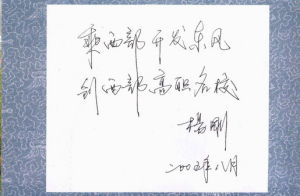 乘西部开发东风
创西部高职名校
杨刚
二〇〇五年八月